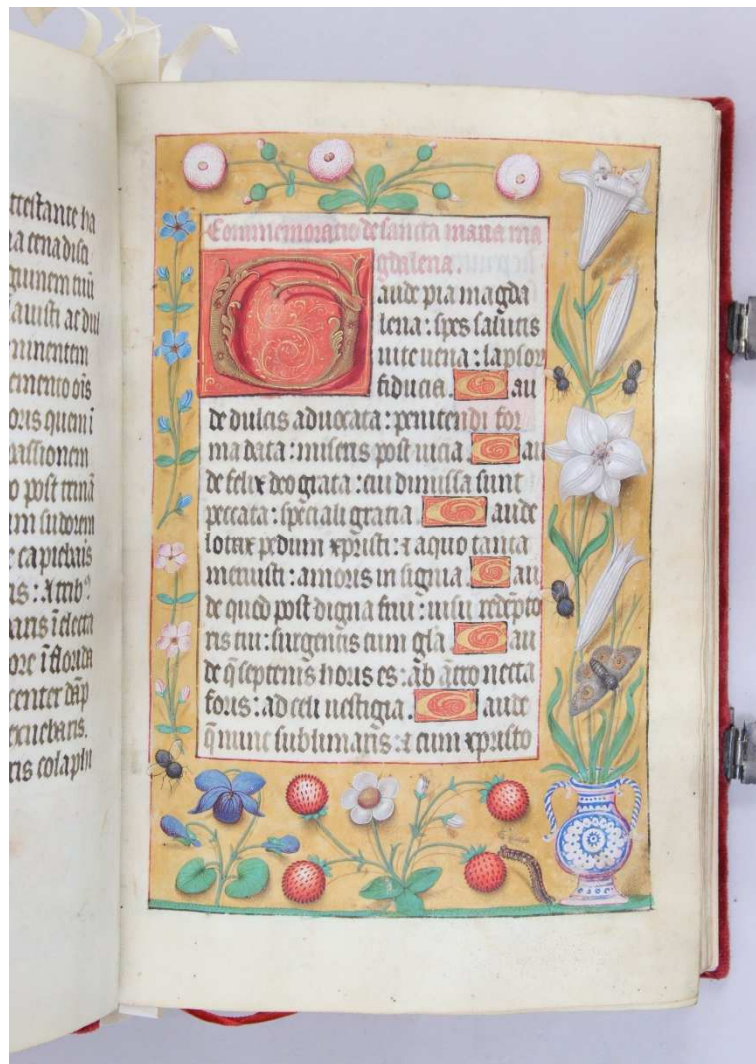 ttestante ha
a cena disci
minentem
oris quem ĩ
assionem
o post trinã
um sudorem
capiebaris
aris ĩ electa
ore ĩ florida
center
exuebaris.
tis colaphi
Commemoratio de sancta maria ma
gdalena.
Gaude pia magda
lena: spes salutis
uite uena: lapsor
fiducia. G au
de dulcis aduocata: penitendi for
ma data: miseris post uicia G au
de felix deo grata: cui dimissa sunt
peccata: speciali gratia. G aude
lotrix pedum xpristi: a quo tanta
meruisti: amoris in signia G au
de quod post digna fuit: uisu redẽpto
ris tui: surgentis cum glã G au
de q̃ septenis horis es: ab
foris: ad celi uestigia. G aude
q̃ nunc sublimaris: et cum xpristo